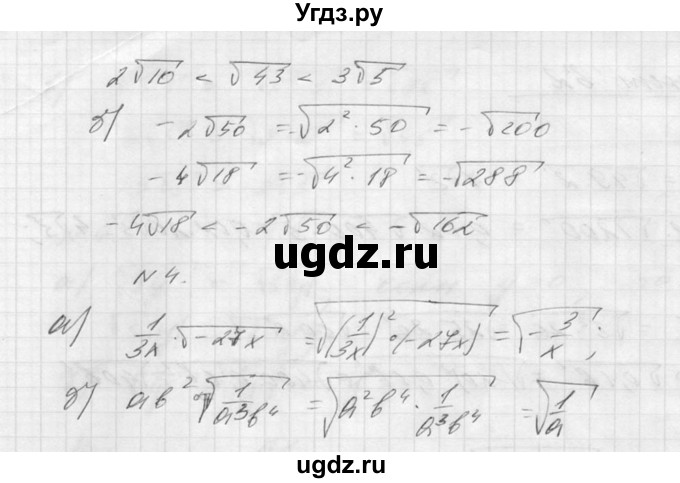 Угдз.ру
2√10 < √43 < 3√5
б) -2√50 = -√(2² · 50) = -√200
-4√18 = -√(4² · 18) = -√288
-4√18 < -2√50 < -√162
ugdz.ru
N 4.
а) 1/(3x) · √(-27x) = √((1/(3x))² · (-27x)) = √(-3/x);
б) ab² √(1/(a³b⁴)) = √(a²b⁴ · 1/(a³b⁴)) = √(1/a)
ugdz.ru
ugdz.ru